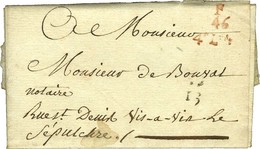 A Monsieur
Monsieur de Bouvat
notaire
Rue st. Denis Vis-a-Vis Le
Sépulchre